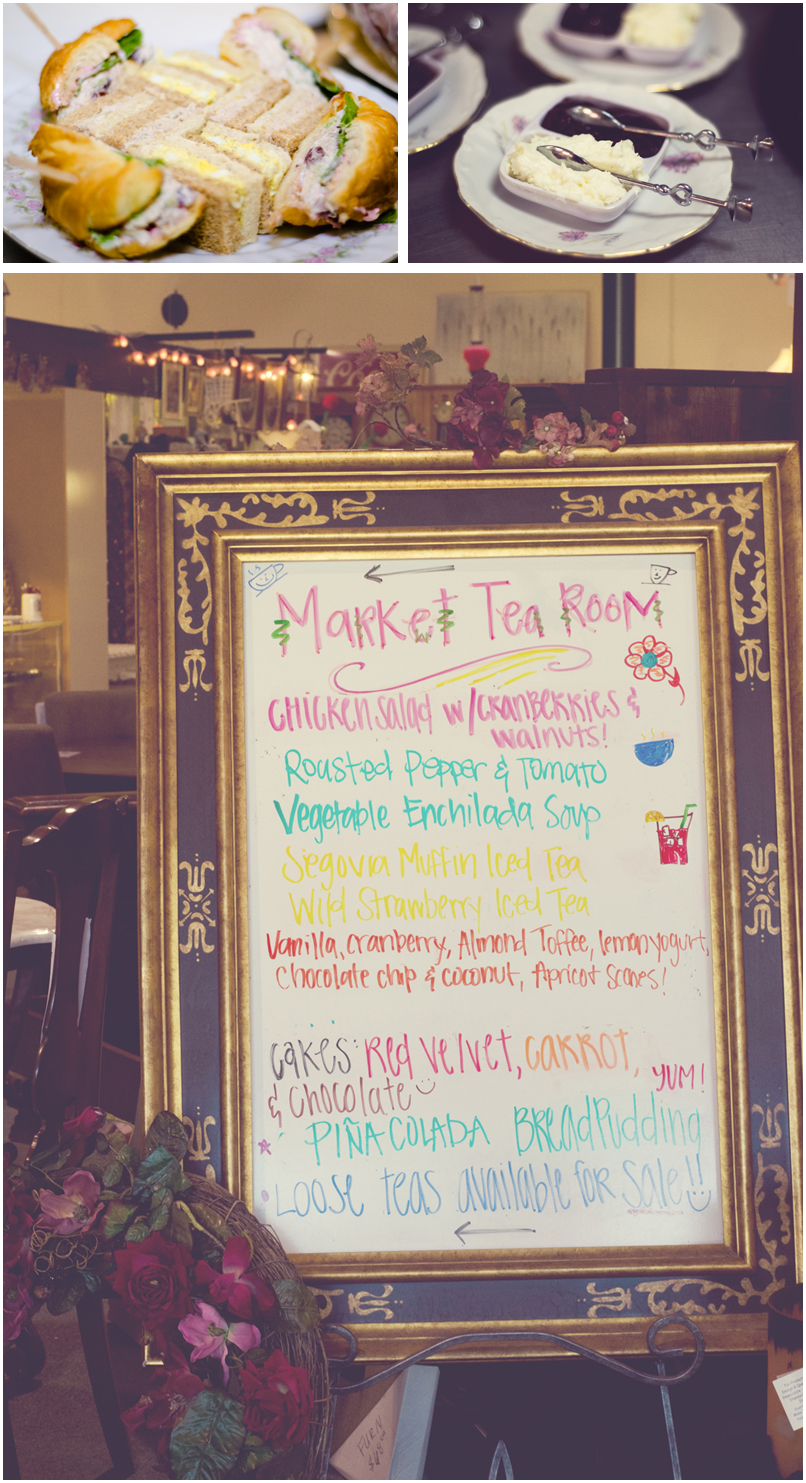 Market Tea Room
Chicken salad w/cranberries &
walnuts!
Roasted Pepper & Tomato
Vegetable Enchilada Soup
Segovia Muffin Iced Tea
Wild Strawberry Iced Tea
Vanilla, cranberry, Almond Toffee, lemon yogurt,
Chocolate chip & coconut, Apricot Scones!
cakes: Red Velvet, carrot,
& Chocolate YUM!
PIÑA COLADA BreadPudding
Loose teas available for Sale!!
FURN